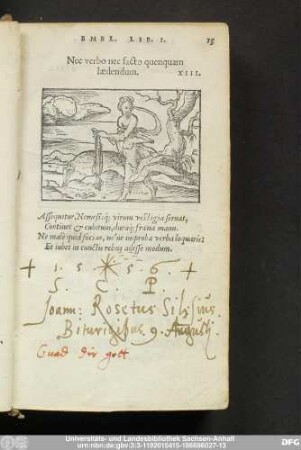 EMBL. LIB. I. 15
Nec verbo nec facto quenquam
lædendum. XIII.
Assequitur, Nemesisq; virum vestigia seruat,
Continet & cubitum, duraq; frena manu.
Ne malè quid facias, néue improba verba loquaris:
Et iubet in cunctis rebus adesse modum.
+ 1 5 * 5 6 +
S. C. P.
Joann: Rosetus Silesius.
Biturigibus 9. Augusti.
Gnad dir gott
Universitäts- und Landesbibliothek Sachsen-Anhalt
urn:nbn:de:gbv:3:3-1192015415-186696027-13
DFG